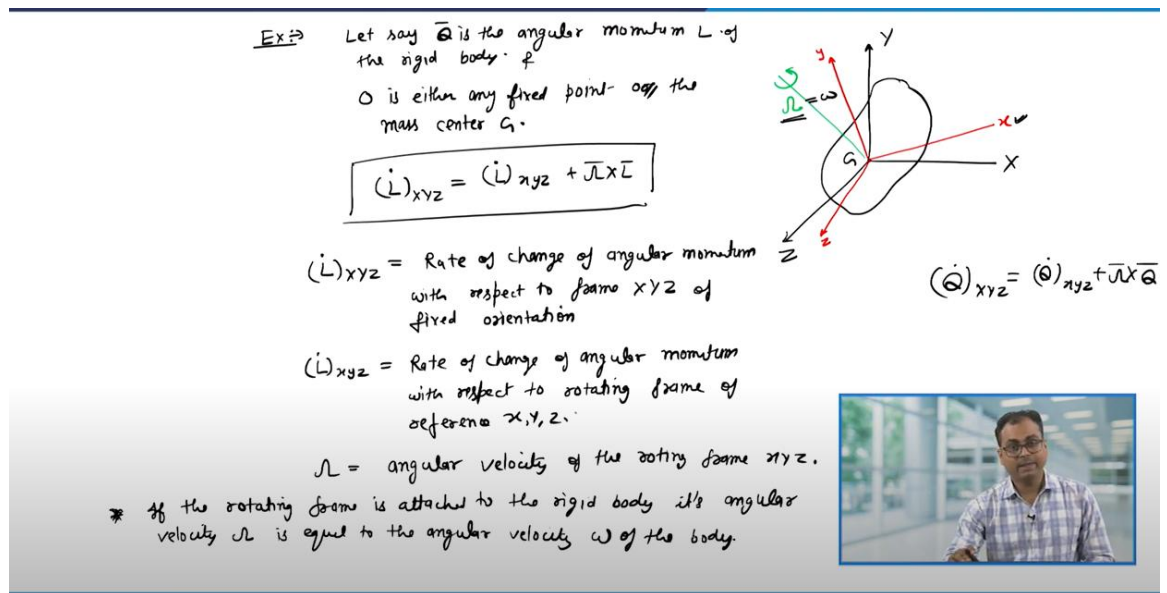 Ex:⇒ Let say Q̄ is the angular momentum L of
the rigid body. &
O is either any fixed point or the
mass center G.
(L̇)XYZ = (L̇)xyz + Ω̄ x L̄
(L̇)XYZ = Rate of change of angular momentum
with respect to frame XYZ of
fixed orientation
(L̇)xyz = Rate of change of angular momentum
with respect to rotating frame of
reference x,y,z.
Ω = angular velocity of the roting frame xyz.
* If the rotating frame is attached to the rigid body it's angular
velocity Ω is equal to the angular velocity ω of the body.
Y
y
Ω = ω
x
G
X
Z
z
(Q̇)XYZ = (Q̇)xyz + Ω̄ x Q̄